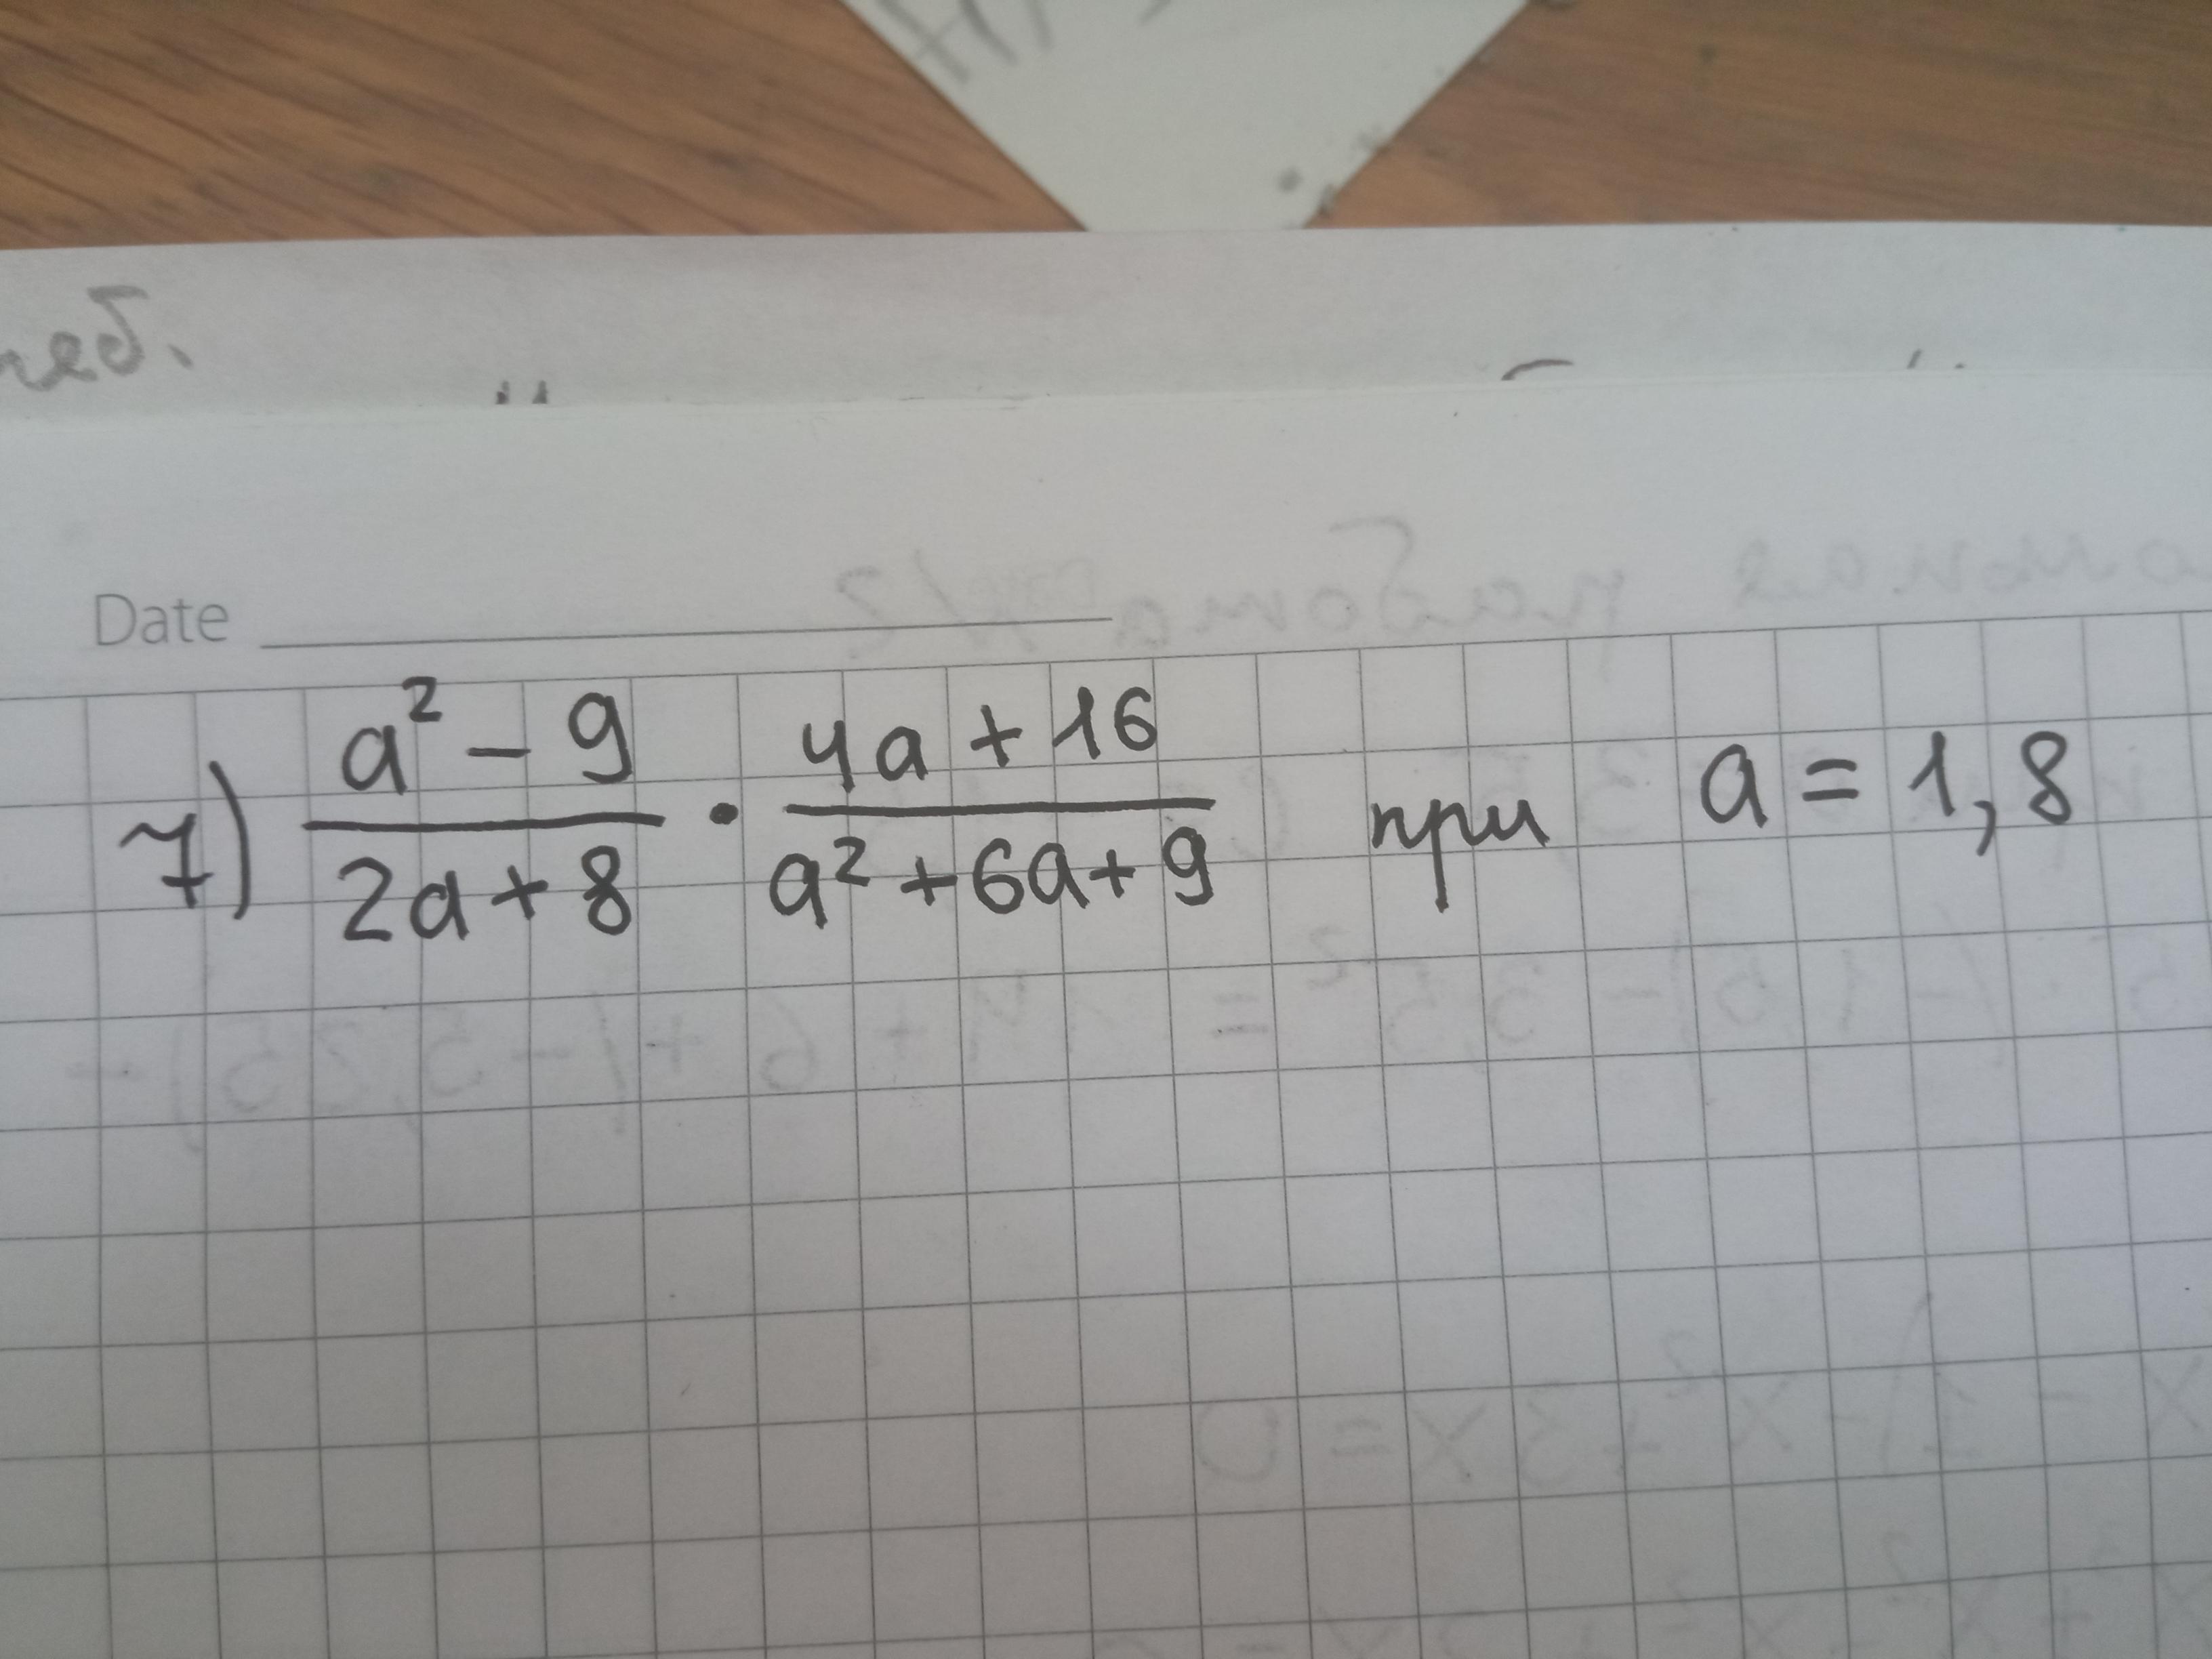 Date
7) \frac{a² - 9}{2a + 8} · \frac{4a + 16}{a² + 6a + 9} при a = 1,8